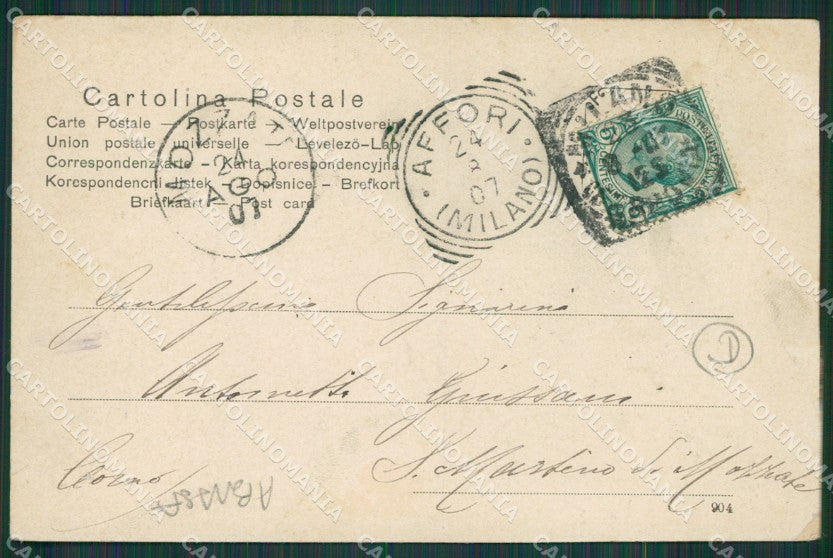 Cartolina Postale
Carte Postale — Postkarte — Weltpostverein
Union postale universelle — Levelezö-Lap
Correspondenzkarte — Karta korespondencyjna
Korespondencni listek — Dopisnice — Brefkort
Briefkaart — Post card
AFFORI
(MILANO)
24
8
07
24
AGO
Gentilissima Signorina
Antonietta Giussani
S. Martino di Mozzate
Como
904
CARTOLINOMANIA